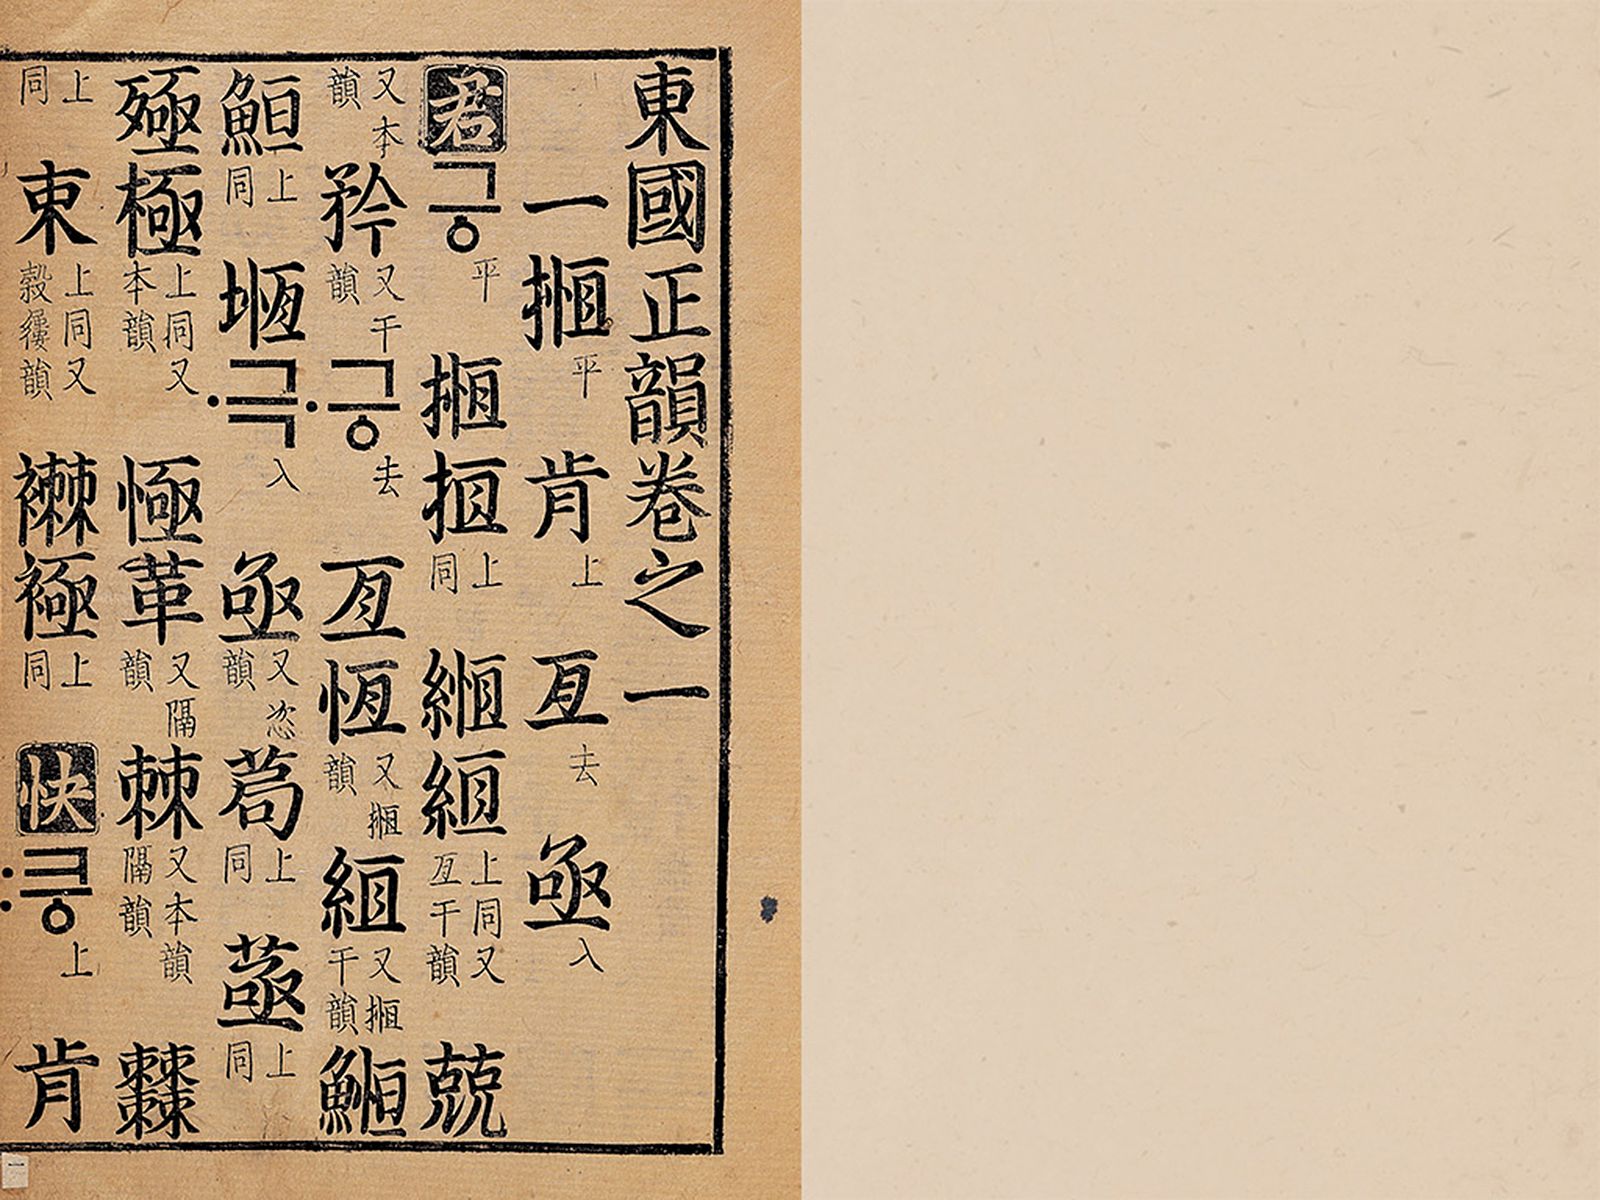 東國正韻卷之一
一揯平肯上亙去亟入
君긍平揯搄上同縆絙上同又亙干韻兢
又本韻矜又干韻·긍去亙恆又揯韻絙又揯干韻䱭
䱇上同堩·극入亟又恣韻茍上同上同
殛極上同又本韻㥛革又隔韻棘又本韻隔韻
上同朿上同又穀韻襋上同快:킁上肯
一